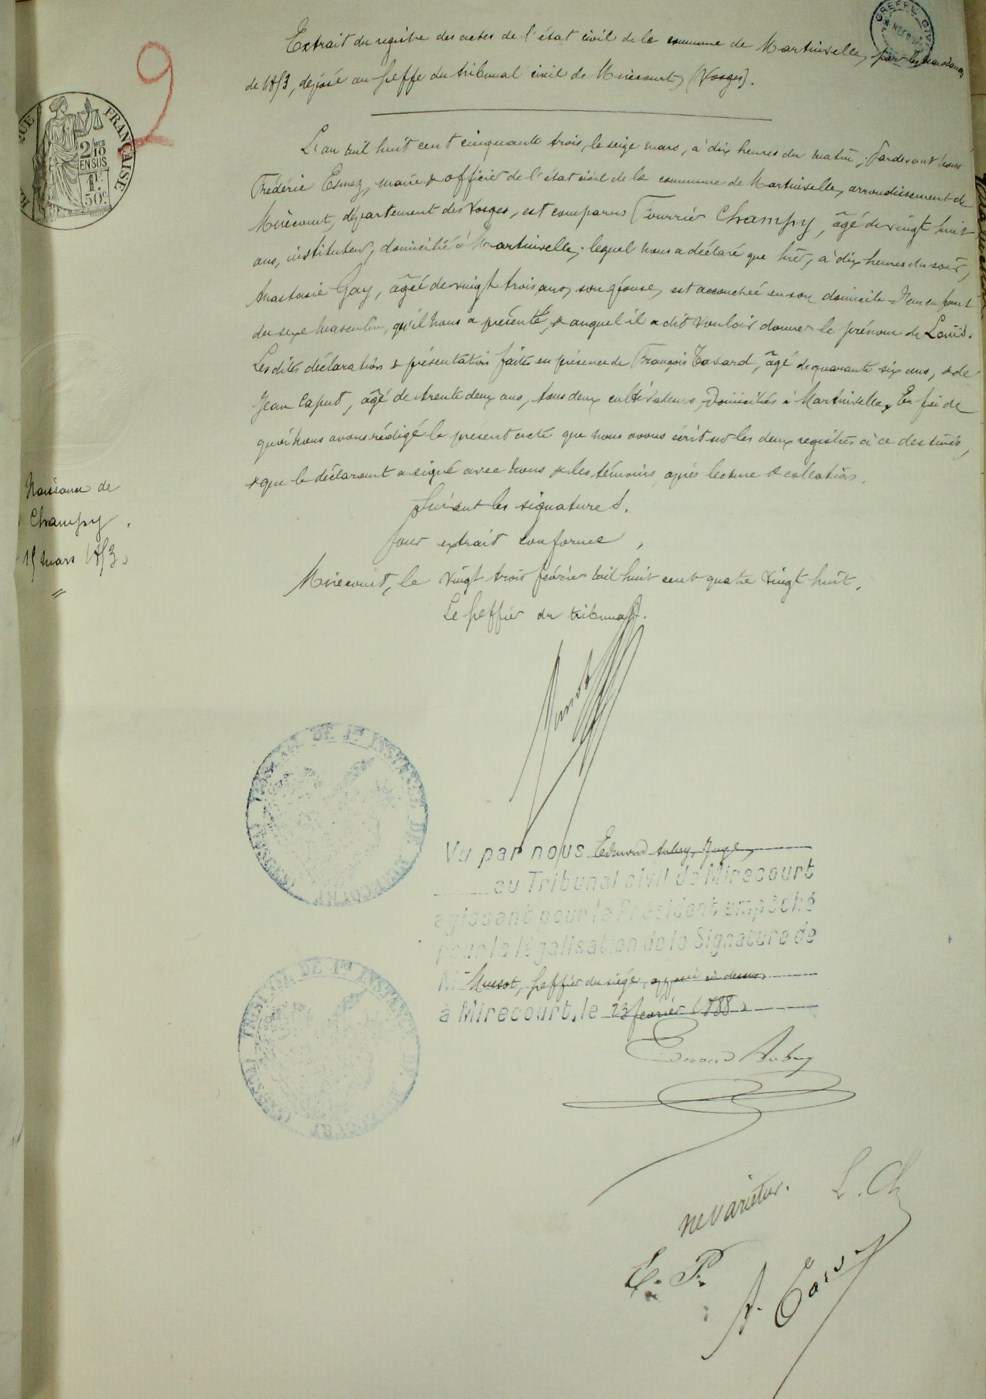 Extrait du registre des actes de l'état civil de la commune de Martinvelle, pour
de 1853, déposé au greffe du tribunal civil de Mirecourt, (Vosges).
2
FRANÇAISE
2/10
EN SUS
1F.
50c
L'an mil huit cent cinquante trois, le seize mars, à dix heures du matin, Pardevant nous
Frédéric maire & officier de l'état civil de la commune de Martinvelle, arrondissement de
Mirecourt, département des Vosges, est comparu Fourrier Champy, âgé de vingt huit
ans, instituteur, domicilié à Martinvelle, lequel nous a déclaré que hier, à dix heures du soir,
Anastasie Gay, âgée de vingt trois ans, son épouse, est accouchée en son domicile d'un enfant
du sexe masculin, qu'il nous a présenté, & auquel il a dit vouloir donner le prénom de Louis.
Les dites déclaration & présentation faites en présence de François âgé de quarante six ans, & de
Jean Caput, âgé de trente deux ans, tous deux cultivateurs, domiciliés à Martinvelle. En foi de
quoi nous avons rédigé le présent acte que nous avons écrit sur les deux registres à ce destinés,
& que le déclarant a signé avec nous & les témoins, après lecture & collation.
Suivent les signatures.
Pour extrait conforme,
Mirecourt, le vingt trois février mil huit cent quatre vingt huit.
Le greffier du tribunal.
Naissance de
Champy.
15 mars 1853.
TRIBUNAL DE 1re INSTANCE DE MIRECOURT
Vu par nous Edmond Aubry, Juge,
au Tribunal civil de Mirecourt
agissant pour le Président empêché
pour la légalisation de la Signature de
Mr greffier du siège, apposée ci dessus,
à Mirecourt, le 23 février 1888.
Edmond Aubry
TRIBUNAL DE 1re INSTANCE
ne varietur.
L. Ch
E. P.